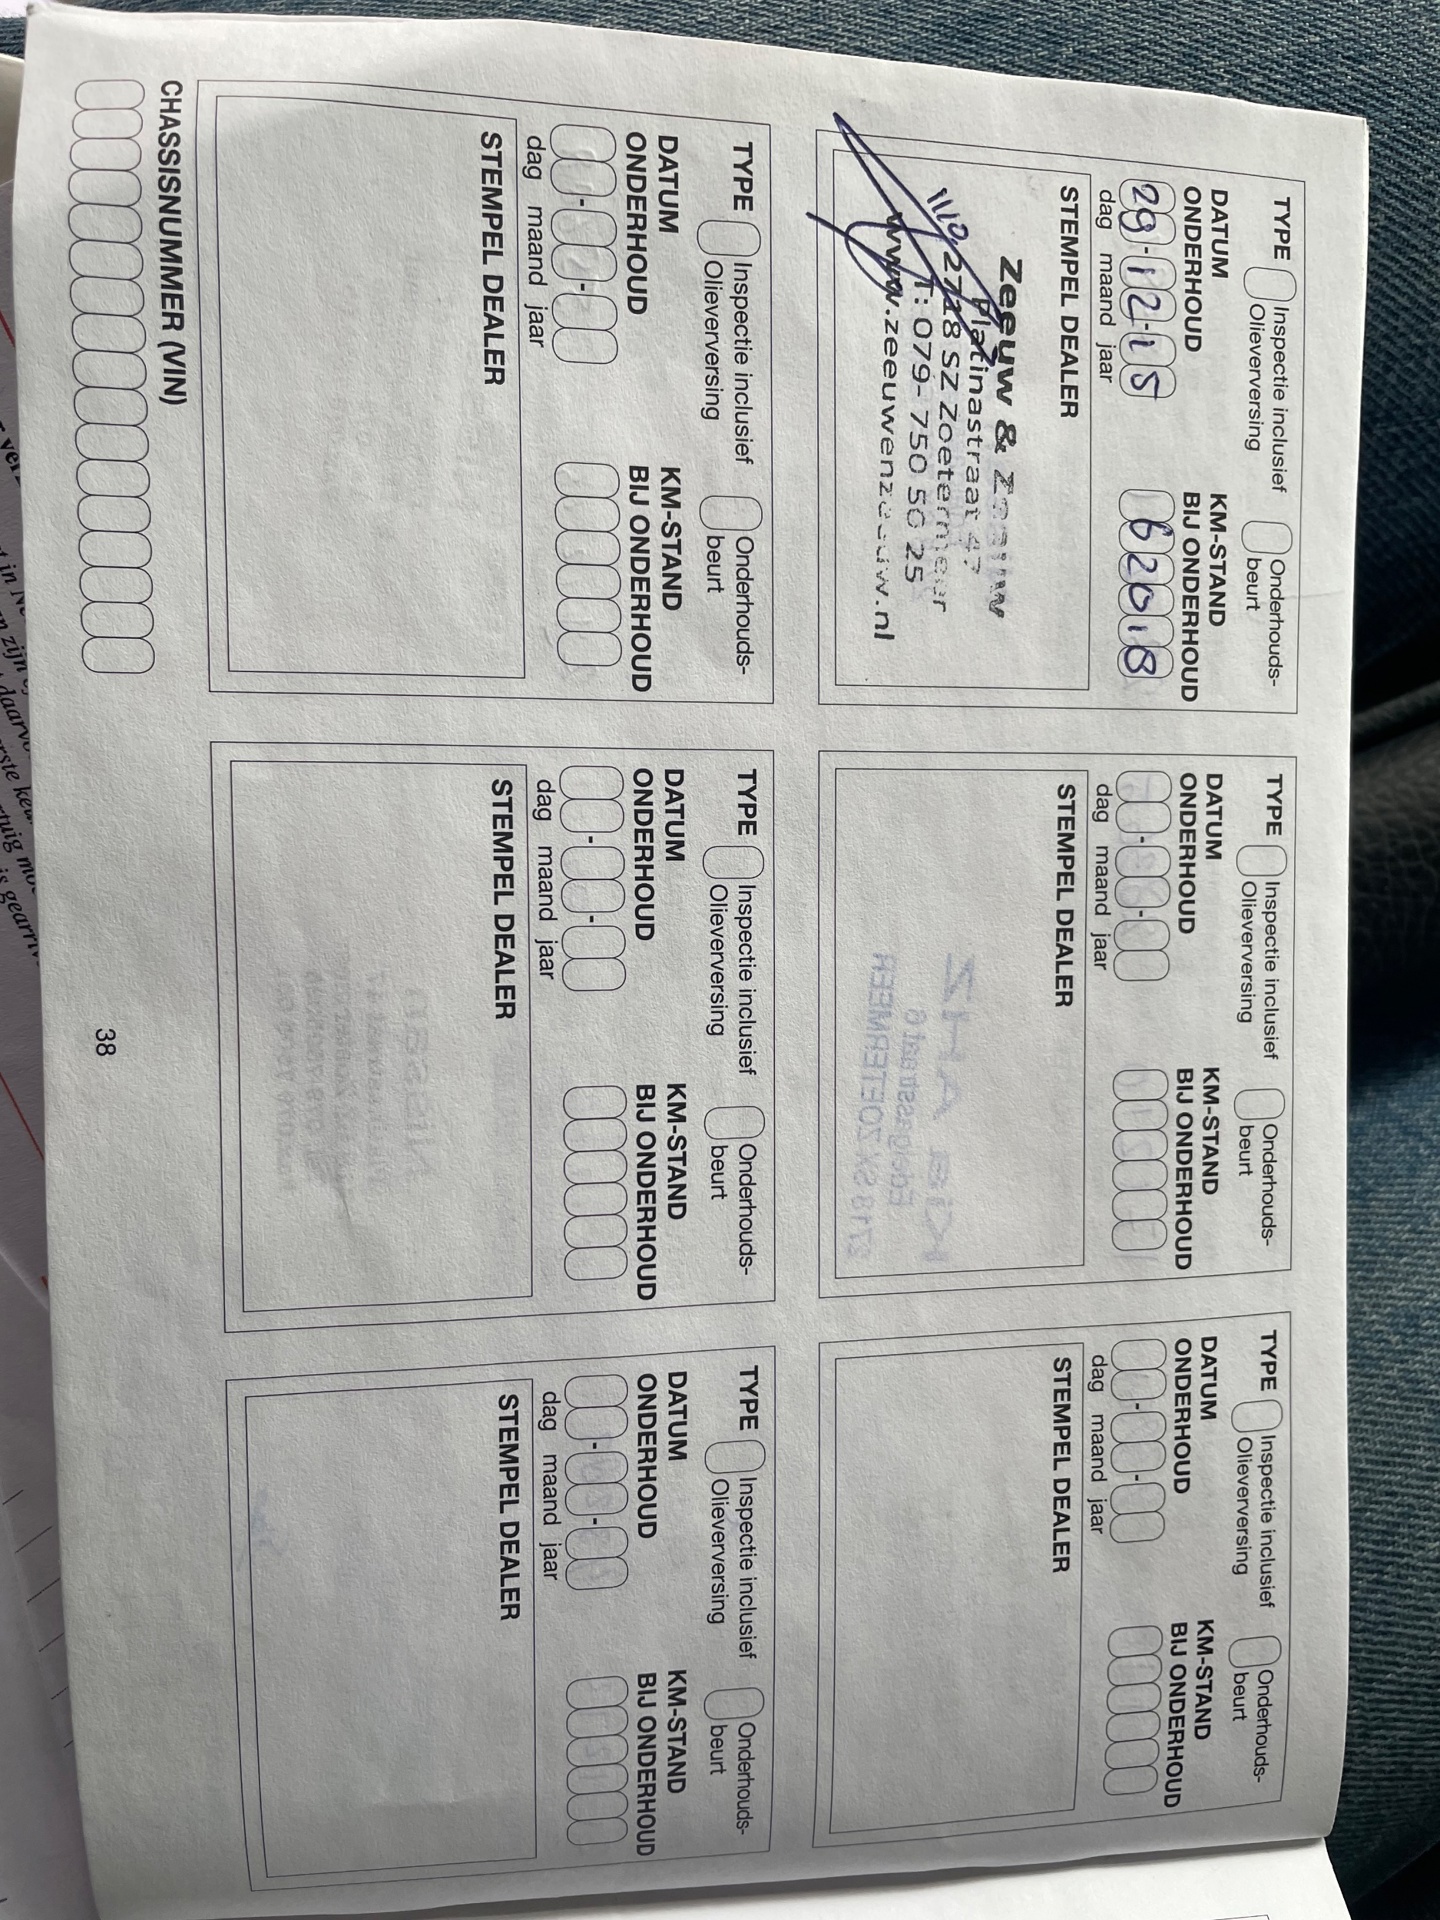 TYPE Inspectie inclusief Olieverversing Onderhouds-beurt
DATUM ONDERHOUD KM-STAND BIJ ONDERHOUD
29-12-15 62018
dag maand jaar
STEMPEL DEALER
Zeeuw & Zeeuw
Platinastraat 47
2718 SZ Zoetermeer
T: 079- 750 50 25
www.zeeuwenzeeuw.nl
TYPE Inspectie inclusief Olieverversing Onderhouds-beurt
DATUM ONDERHOUD KM-STAND BIJ ONDERHOUD
dag maand jaar
STEMPEL DEALER
TYPE Inspectie inclusief Olieverversing Onderhouds-beurt
DATUM ONDERHOUD KM-STAND BIJ ONDERHOUD
dag maand jaar
STEMPEL DEALER
TYPE Inspectie inclusief Olieverversing Onderhouds-beurt
DATUM ONDERHOUD KM-STAND BIJ ONDERHOUD
dag maand jaar
STEMPEL DEALER
TYPE Inspectie inclusief Olieverversing Onderhouds-beurt
DATUM ONDERHOUD KM-STAND BIJ ONDERHOUD
dag maand jaar
STEMPEL DEALER
TYPE Inspectie inclusief Olieverversing Onderhouds-beurt
DATUM ONDERHOUD KM-STAND BIJ ONDERHOUD
dag maand jaar
STEMPEL DEALER
CHASSISNUMMER (VIN)
38